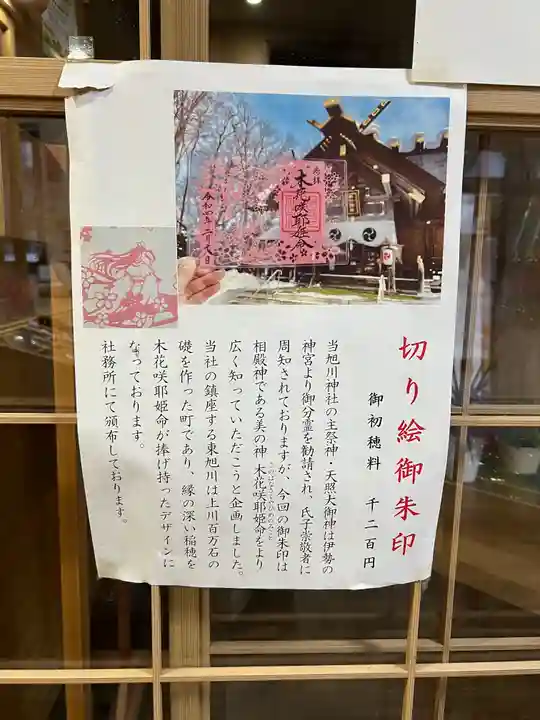 切り絵御朱印
御初穂料　千二百円
当旭川神社の主祭神・天照大御神は伊勢の
神宮より御分霊を勧請され、氏子崇敬者に
周知されておりますが、今回の御朱印は
相殿神である美の神 木花咲耶姫命をより
このはなさくやひめのみこと
広く知っていただこうと企画しました。
当社の鎮座する東旭川は上川百万石の
礎を作った町であり、縁の深い稲穂を
木花咲耶姫命が捧げ持ったデザインに
なっております。
社務所にて頒布しております。
奉拝
木花咲耶姫命
令和四年二月八日